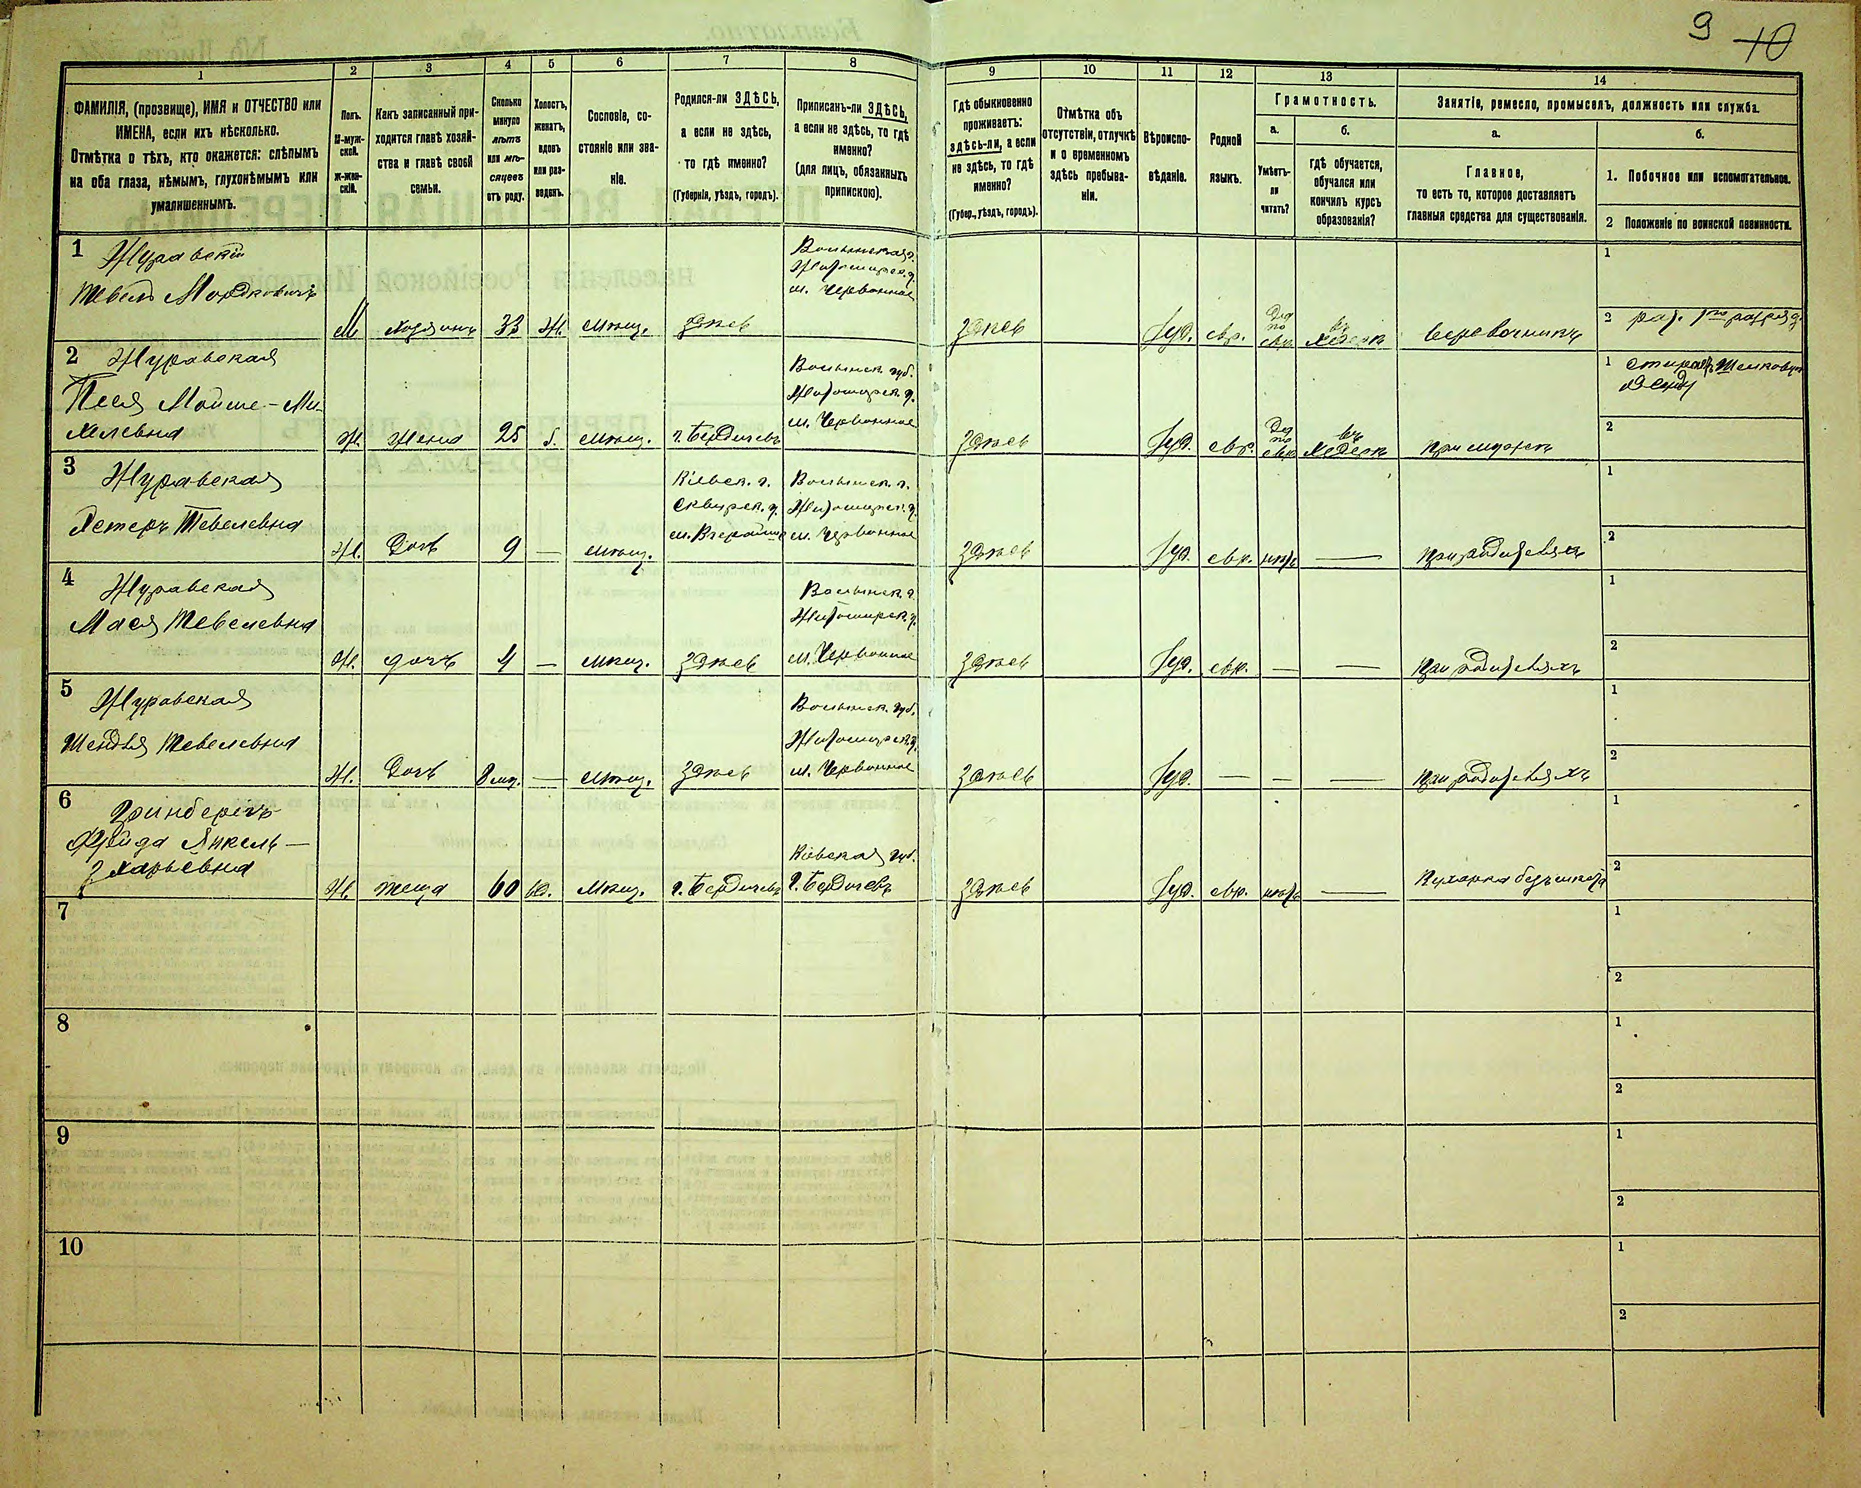 9 10
1 2 3 4 5 6 7 8 9 10 11 12 13 14
ФАМИЛІЯ, (прозвище), ИМЯ и ОТЧЕСТВО или
ИМЕНА, если ихъ нѣсколько.
Отмѣтка о тѣхъ, кто окажется: слѣпымъ
на оба глаза, нѣмымъ, глухонѣмымъ или
умалишеннымъ.
Полъ.
М-муж-
ской.
ж-жен-
скій.
Какъ записанный при-
ходится главѣ хозяй-
ства и главѣ своей
семьи.
Сколько
минуло
лѣтъ
или мѣ-
сяцевъ
отъ роду.
Холостъ,
женатъ,
вдовъ
или раз-
веденъ.
Сословіе, со-
стояніе или зва-
ніе.
Родился-ли ЗДѢСЬ,
а если не здѣсь,
то гдѣ именно?
(Губернія, уѣздъ, городъ).
Приписанъ-ли ЗДѢСЬ,
а если не здѣсь, то гдѣ
именно?
(для лицъ, обязанныхъ
припискою).
Гдѣ обыкновенно
проживаетъ:
здѣсь-ли, а если
не здѣсь, то гдѣ
именно?
(Губер., уѣздъ, городъ).
Отмѣтка объ
отсутствіи, отлучкѣ
и о временномъ
здѣсь пребыва-
ніи.
Вѣроиспо-
вѣданіе.
Родной
языкъ.
Грамотность.
а. б.
Умѣетъ-
ли
читать?
гдѣ обучается,
обучался или
кончилъ курсъ
образованія?
Занятіе, ремесло, промыселъ, должность или служба.
а. б.
Главное,
то есть то, которое доставляетъ
главныя средства для существованія.
1. Побочное или вспомогательное.
2 Положеніе по воинской повинности.
1 Журавскій
Тевель Мордковичъ
М хозяинъ 33 Ж. мѣщ. здѣсь
Волынская г.
Житомирск. у.
м. Червонное
здѣсь Іуд. евр.
Да
по
евр.
въ
хедерѣ
веревочникъ
1
2
2 Журавская
Песя Мойше-Ми-
хелевна
Ж. жена 25 мѣщ. г. Бердичевъ
Волынск. губ.
Житомирск. у.
м. Червонное
здѣсь Іуд. евр.
Да
по
евр.
въ
хедерѣ
при мужѣ
1
2
3 Журавская
Эстеръ Тевелевна
Ж. дочь 9 — мѣщ.
Кіевск. г.
Сквирск. у.
Волынск. г.
Житомирск. у.
м. Червонное
здѣсь Іуд. евр. нѣтъ — при родителяхъ
1
2
4 Журавская
Мася Тевелевна
Ж. дочь 4 — мѣщ. здѣсь
Волынск. г.
Житомирск. у.
м. Червонное
здѣсь Іуд. евр. — — при родителяхъ
1
2
5 Журавская
Шендля Тевелевна
Ж. дочь 8 мѣс. — мѣщ. здѣсь
Волынск. губ.
Житомирск. у.
м. Червонное
здѣсь Іуд. — — — при родителяхъ
1
2
6 Гринбергъ
Фрейда Янкель-
Ж. теща 60 вд. мѣщ. г. Бердичевъ
Кіевская губ.
г. Бердичевъ
здѣсь Іуд. евр. нѣтъ —
Кухарка безъ мѣста
1
2
7
1
2
8
1
2
9
1
2
10
1
2